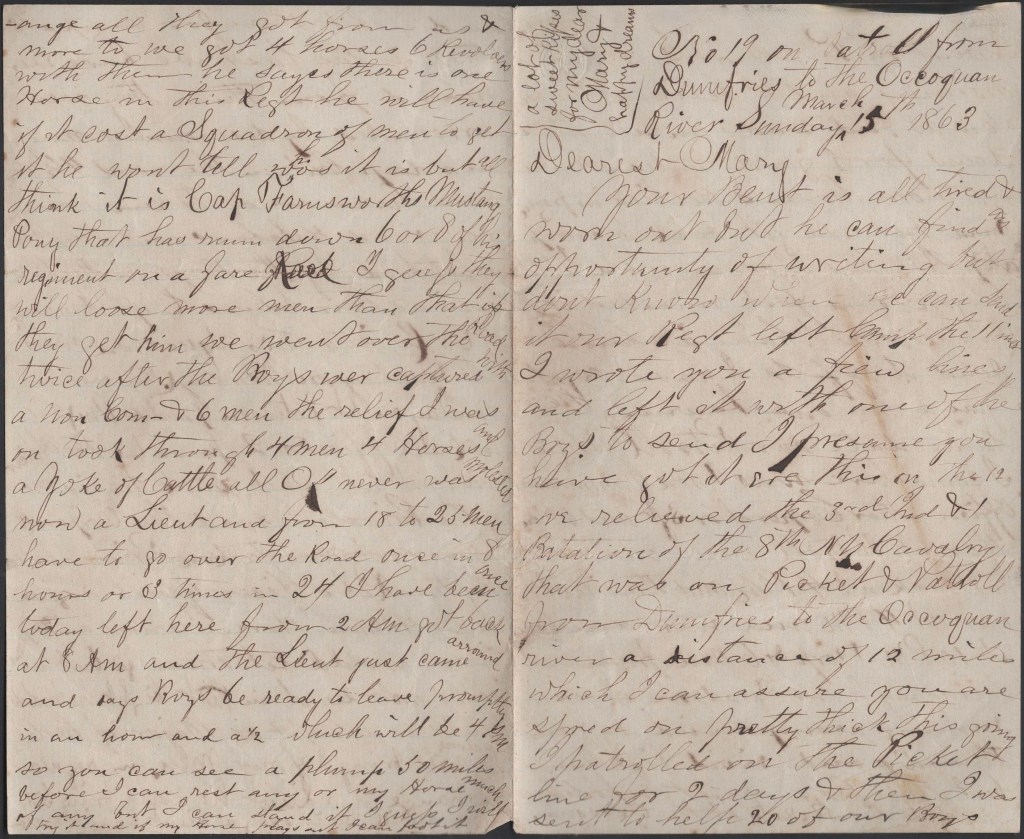 No 19 on Patroll from
Dumfries to the Occoquan
River Sunday March 15th 1863
a lot of
sweet kisses
for my dear
Mary &
happy dreams
Dearest Mary
Your Bent is all tired &
worn out but he can find an
opportunity of writing but
dont know when he can send
it our Regt left Camp the 11 inst
I wrote you a few lines
and left it with one of the
Boys to send I presume you
have got it ere this on the 12
we relieved the 3rd Ind & 1
Batalion of the 8th NY Cavalry
that was on Picket & Patroll
from Dumfries to the Occoquan
river a distance of 12 miles
which I can assure you are
spred on pretty thick this going
I patrolled on the Picket
line for 2 days & then I was
sent to help 20 of our Boys
-ange all they got from us &
more to we got 4 horses 6 Revolvers
with them he says there is one
Horse in this Regt he will have
if it cost a Squadron of men to get
it he wont tell whos it is but all
think it is Cap Farnsworths Mustang
Pony that has run down 6 or 8 of his
regiment on a fare I guess they
will loose more men than that if
they get him we went over the Road
twice after the Boys wer captured with
a non Com- & 6 men the relief I was
on took through 64 men 4 Horses and
a Yoke of Cattle all O" never was molested
now a Lieut and from 18 to 25 men
have to go over the Road once in 8
hours or 3 times in 24 I have been once
today left here from 2 Am got back
at 8 Am and the Lieut just came arround
and says Boys be ready to leave promptly
in an hour and a ½ which will be 4 Pm
so you can see a plump 50 miles
before I can rest any or my Horse much
of any but I can stand it I guess I will
my Horse plays out I can foot it